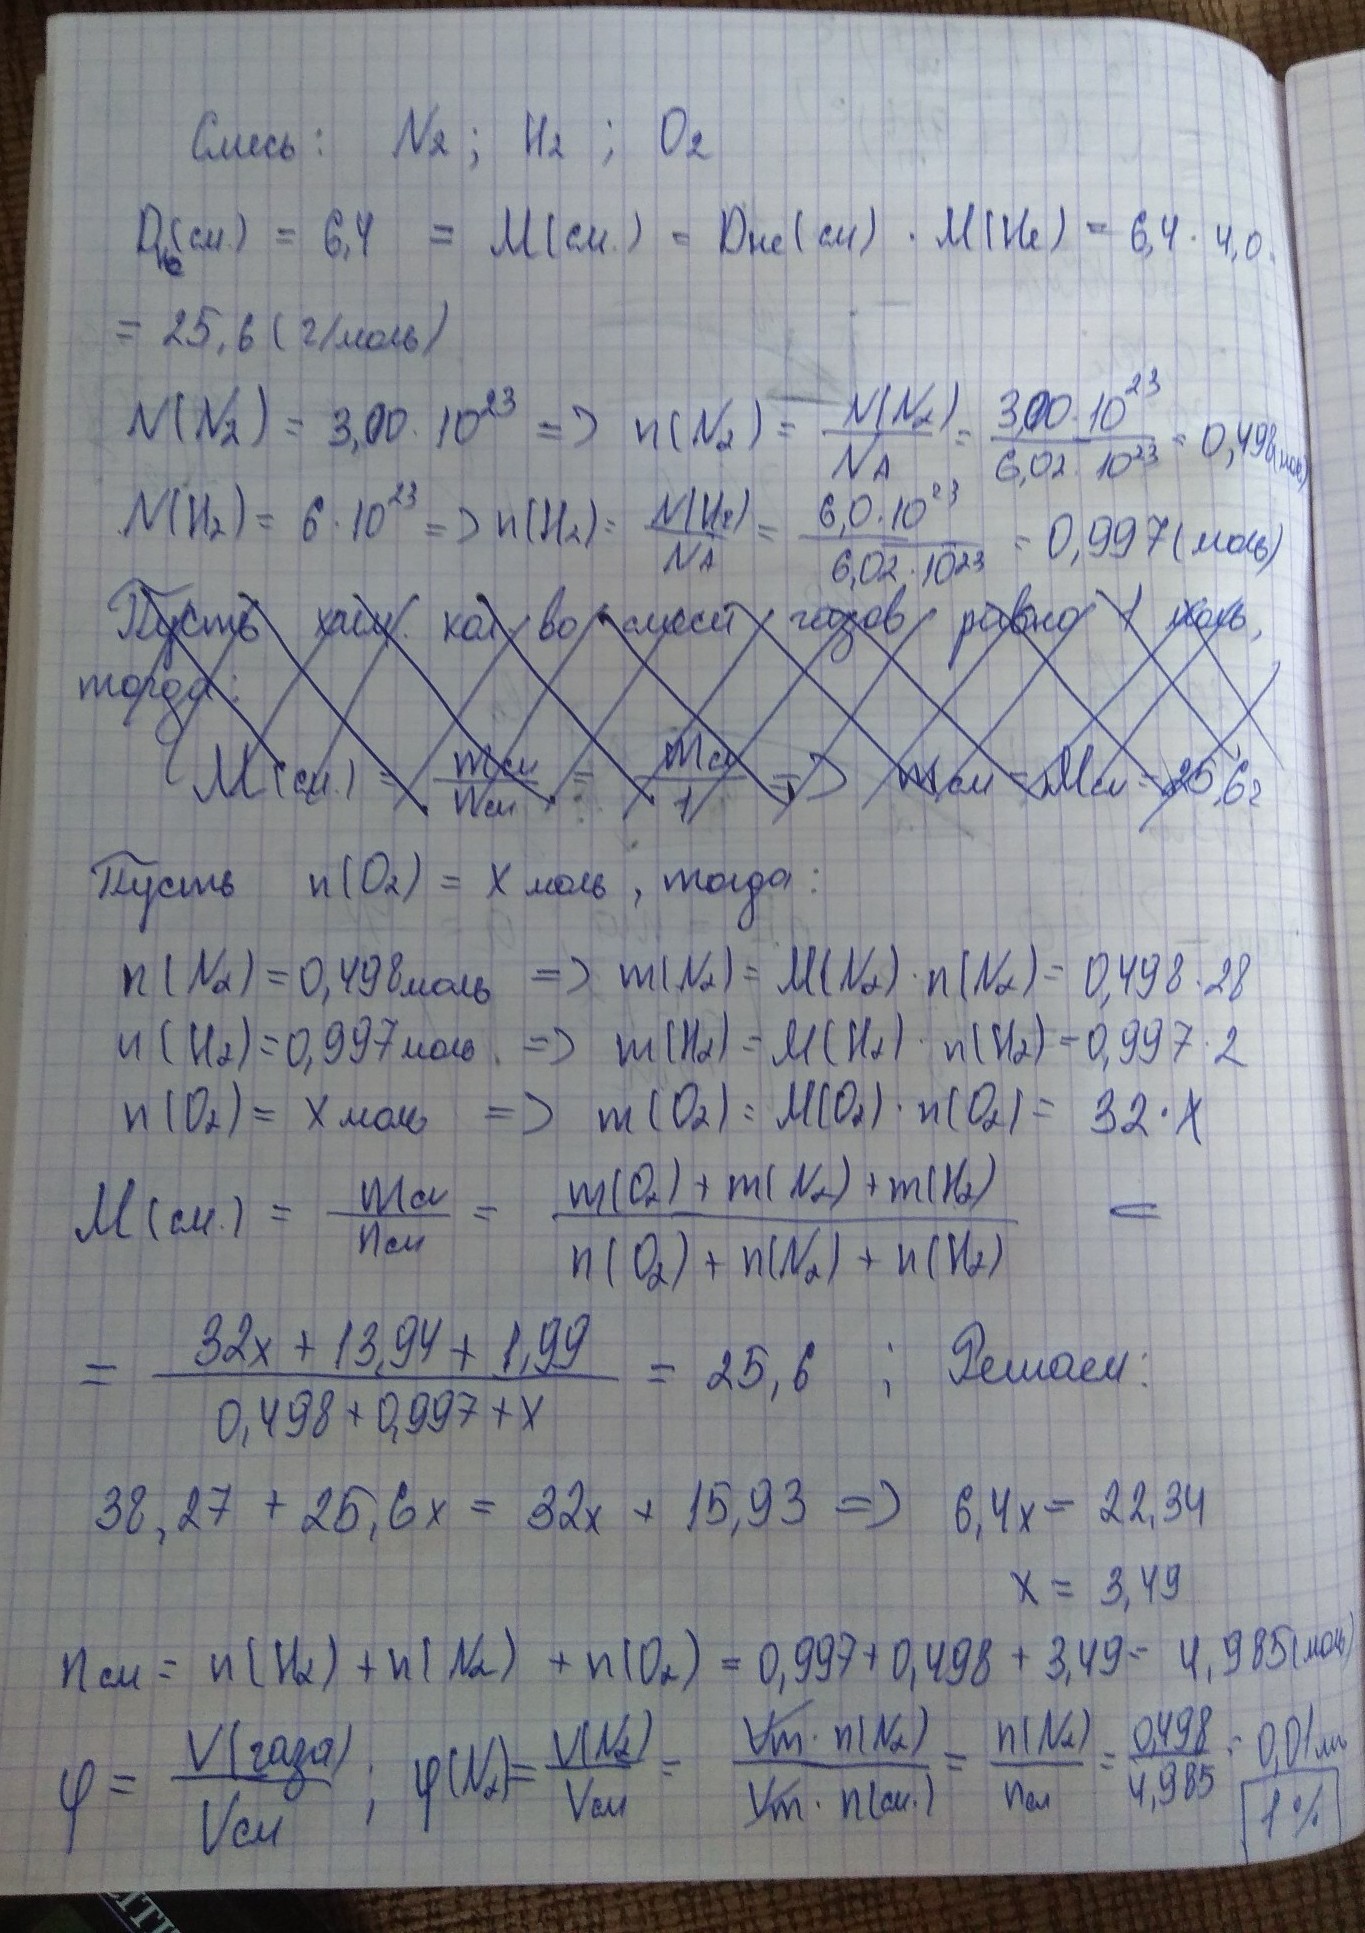 Смесь: N2 ; H2 ; O2
Dне(см.) = 6,4 = M(см.) = Dне(см) · M(He) = 6,4 · 4,0 =
= 25,6 (г/моль)
N(N2) = 3,00 · 10^23 => n(N2) = N(N2)/NA = 3,00 · 10^23/6,02 · 10^23 = 0,498(моль)
N(H2) = 6 · 10^23 => n(H2) = N(H2)/NA = 6,0 · 10^23/6,02 · 10^23 = 0,997 (моль)
Пусть хим. кол во смеси газов равно 1 моль,
тогда:
M(см.) = mсм/nсм = mсм/1 => mсм = Mсм = 25,6г
Пусть n(O2) = x моль, тогда:
n(N2) = 0,498моль => m(N2) = M(N2) · n(N2) = 0,498 · 28
n(H2) = 0,997моль. => m(H2) = M(H2) · n(H2) = 0,997 · 2
n(O2) = x моль => m(O2) = M(O2) · n(O2) = 32 · x
M(см.) = mсм/nсм = m(O2) + m(N2) + m(H2)/n(O2) + n(N2) + n(H2) =
= 32x + 13,94 + 1,99/0,498 + 0,997 + x = 25,6 ; Решаем:
38,27 + 25,6x = 32x + 15,93 => 6,4x = 22,34
x = 3,49
nсм = n(H2) + n(N2) + n(O2) = 0,997 + 0,498 + 3,49 = 4,985(моль)
φ = V(газа)/Vсм ; φ(N2) = V(N2)/Vсм = Vm · n(N2)/Vm · n(см.) = n(N2)/nсм = 0,498/4,985 = 0,01 или
1%